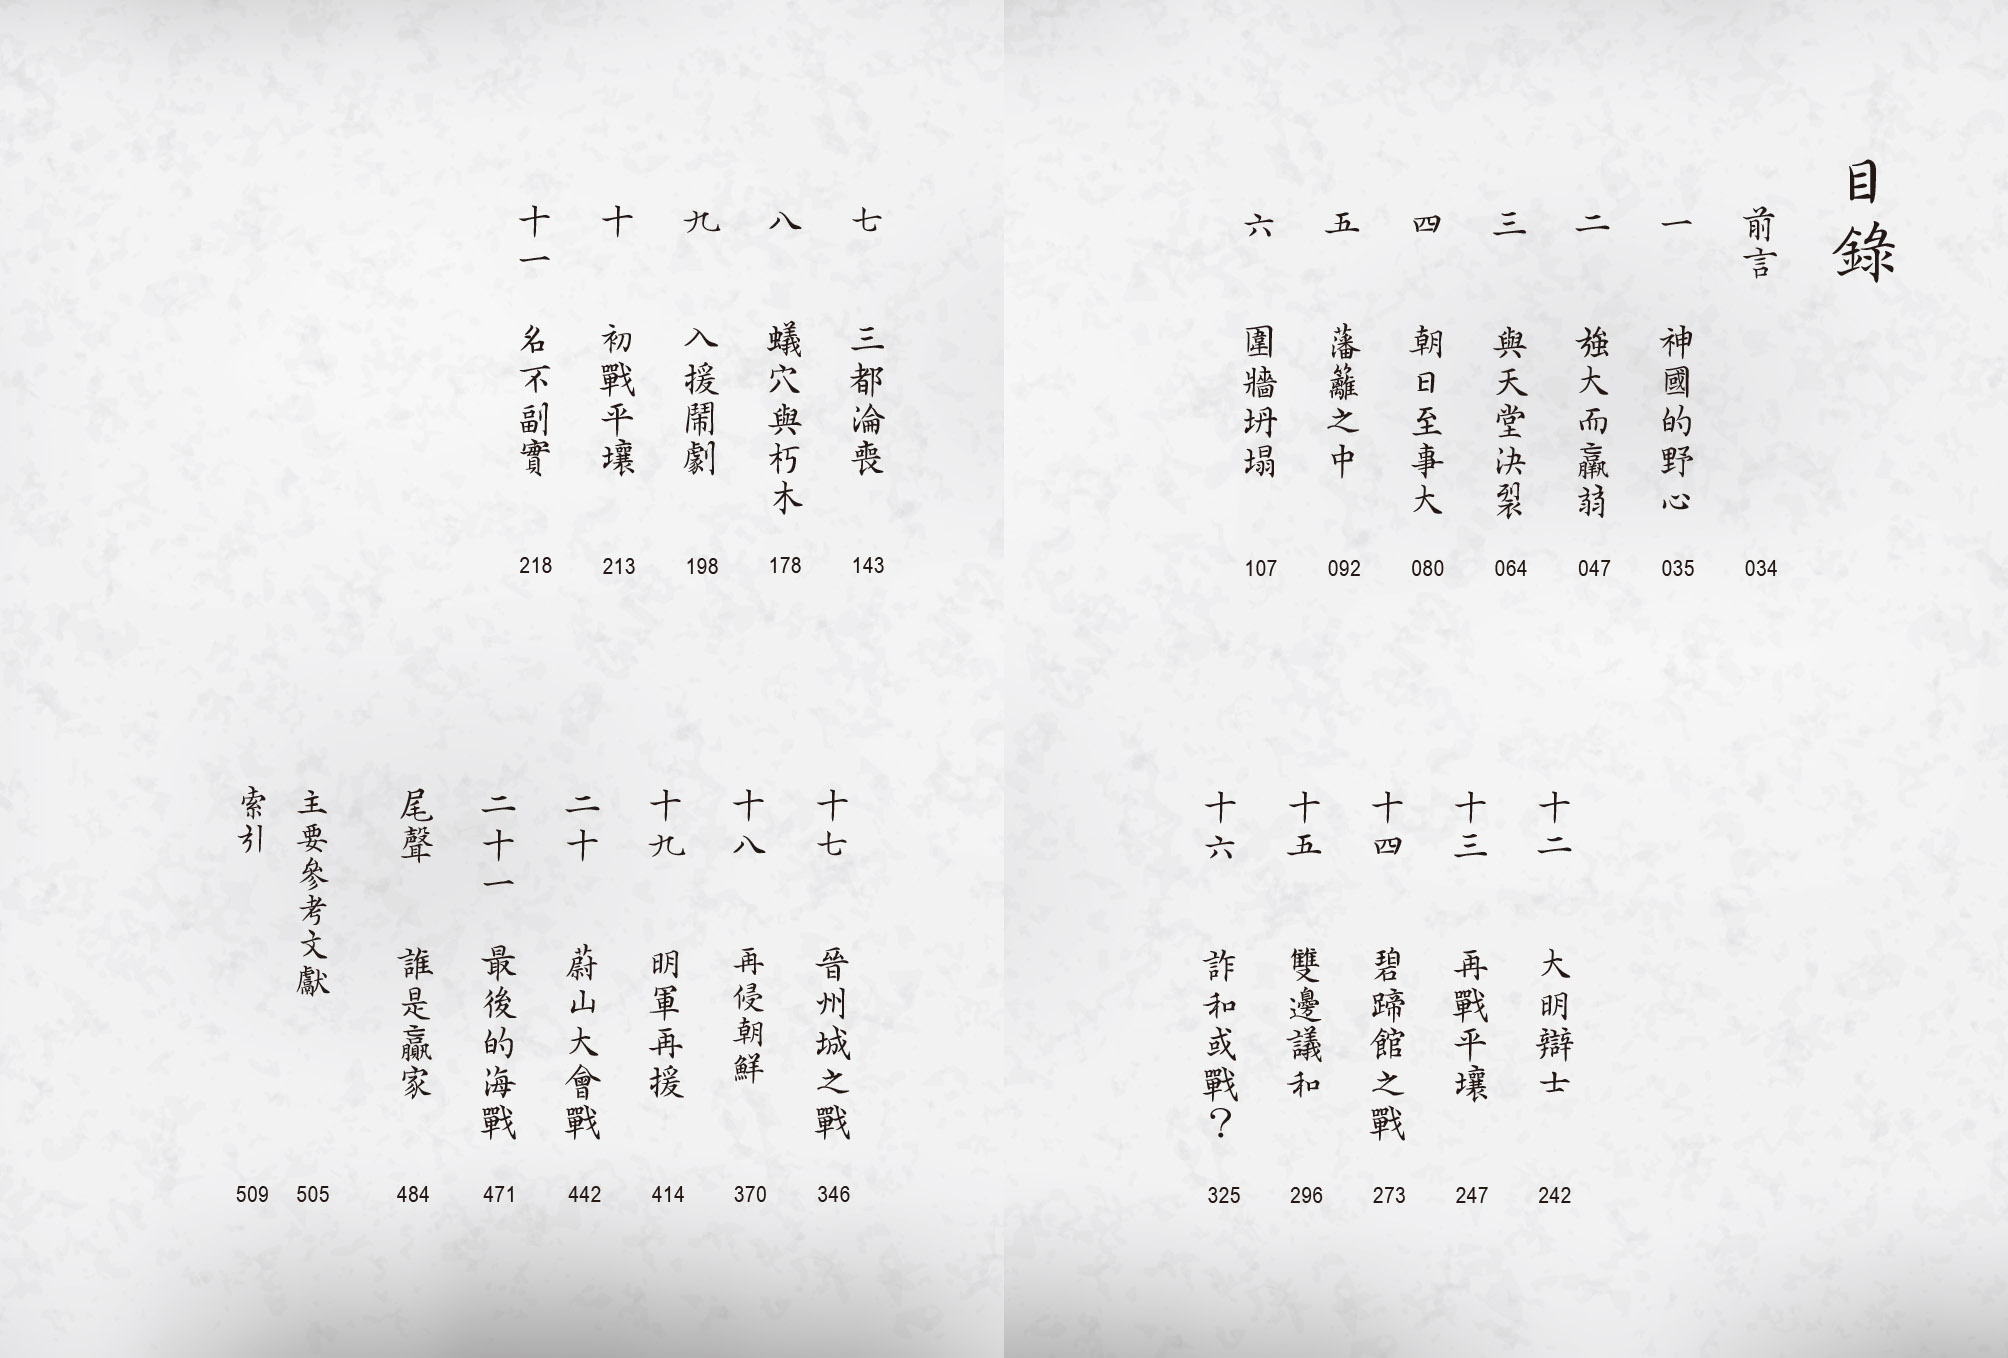 目錄
前言 034
一 神國的野心 035
二 強大而羸弱 047
三 與天堂決裂 064
四 朝日至事大 080
五 藩籬之中 092
六 圍牆坍塌 107
七 三都淪喪 143
八 蟻穴與朽木 178
九 入援鬧劇 198
十 初戰平壤 213
十一 名不副實 218
十二 大明辯士 242
十三 再戰平壤 247
十四 碧蹄館之戰 273
十五 雙邊議和 296
十六 詐和或戰？ 325
十七 晉州城之戰 346
十八 再侵朝鮮 370
十九 明軍再援 414
二十 蔚山大會戰 442
二十一 最後的海戰 471
尾聲 誰是贏家 484
主要參考文獻 505
索引 509